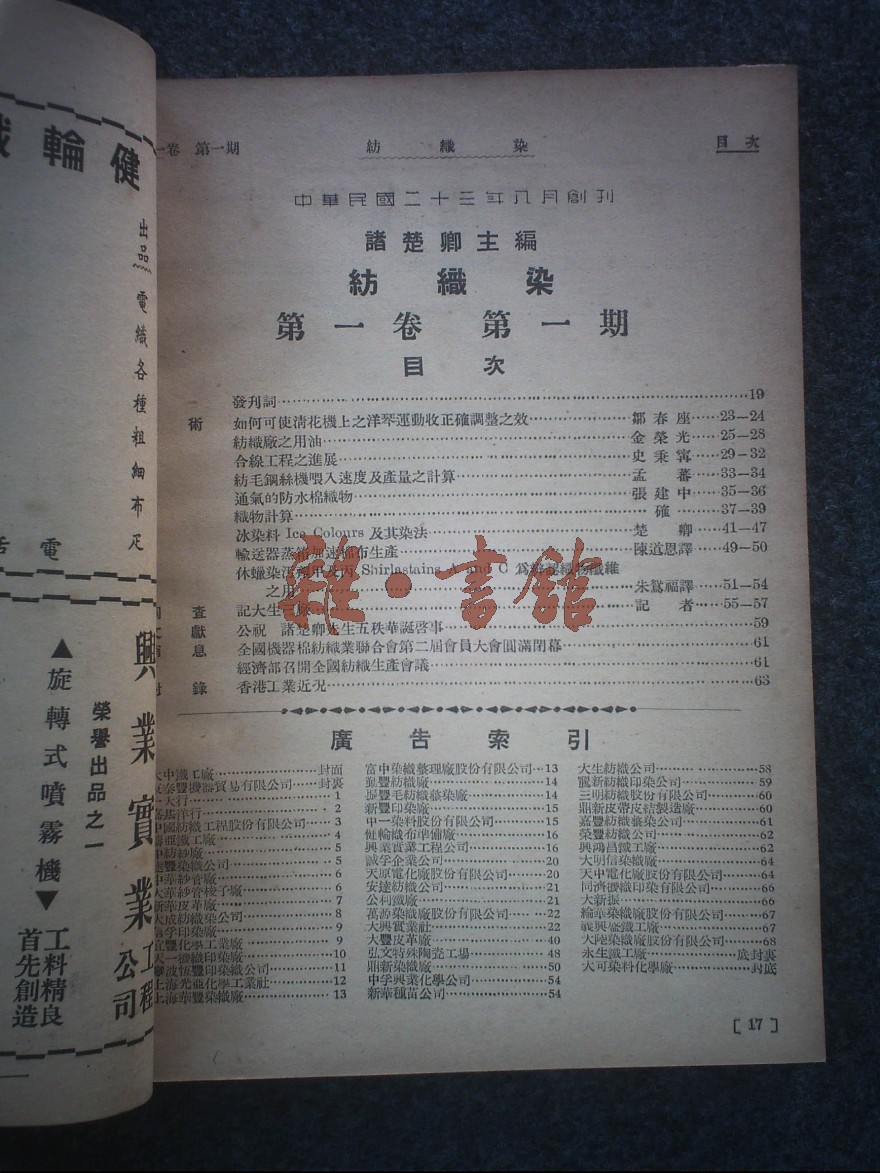 一卷 第一期 紡織染 目次
中華民國二十三年八月創刊
諸楚卿主編
紡織染
第一卷 第一期
目次
發刊詞……19
術 如何可使清花機上之洋琴運動收正確調整之效……鄒春座……23—24
紡織廠之用油……金榮光……25—28
合線工程之進展……史秉寗……29—32
紡毛鋼絲機喂入速度及產量之計算……孟蕃……33—34
通氣的防水棉織物……張建中……35—36
織物計算……確……37—39
冰染料 Ice Colours 及其染法……楚卿……41—47
輸送器蒸箱加速棉布生產……陳道恩譯……49—50
Shirlastains A and C 爲
之用……朱鴛福譯……51—54
查 記大生三廠……記者……55—57
獻 公祝 諸楚卿先生五秩華誕啓事……59
息 全國機器棉紡織業聯合會第二屆會員大會圓滿閉幕……61
經濟部召開全國紡織生產會議……61
錄 香港工業近況……63
廣告索引
大中鐵工廠……封面
泰豐機器貿易有限公司……封裏
一大行……1
洋行……2
中國紡織工程股份有限公司……3
亞鐵工廠……4
中紡紗廠……5
豐紡織公司……5
中華紗管廠……6
大華紗管梭子廠……6
新華皮革廠……7
大成紡織染公司……8
信孚印染廠……9
宜豐化學工業廠……9
天一機織印染廠……10
寧波恆豐印染織公司……11
上海光亞化學工業社……12
上海華豐染織廠……13
富中染織整理廠股份有限公司……13
勤豐紡織廠……14
振豐毛紡織整染廠……14
新豐印染廠……15
中一染料股份有限公司……15
健輪織布準備廠……16
興業實業工程公司……16
誠孚企業公司……20
天原電化廠股份有限公司……20
安達紡織公司……21
公利鐵廠……21
萬源染織廠股份有限公司……22
大興實業社……22
大豐皮革廠……40
弘文特殊陶瓷工場……48
鼎新染織廠……50
中孚興業化學公司……54
新華種苗公司……54
大生紡織公司……58
龍新紡織印染公司……59
三明紡織股份有限公司……60
鼎新皮帶皮結製造廠……60
嘉豐紡織整染公司……61
榮豐紡織公司……62
興鴻昌鐵工廠……62
大明信染織廠……64
天中電化廠股份有限公司……64
同濟機織印染有限公司……66
大新振……66
綸華染織廠股份有限公司……67
義興盛鐵工廠……67
大陸染織廠股份有限公司……68
永生鐵工廠……底封裏
大可染料化學廠……封底
[17]
健輪織
出品 電織各種粗細布疋
電話
興業實業工程公司
榮譽出品之一
▲旋轉式噴霧機▼
工料精良
首先創造
雜·書館